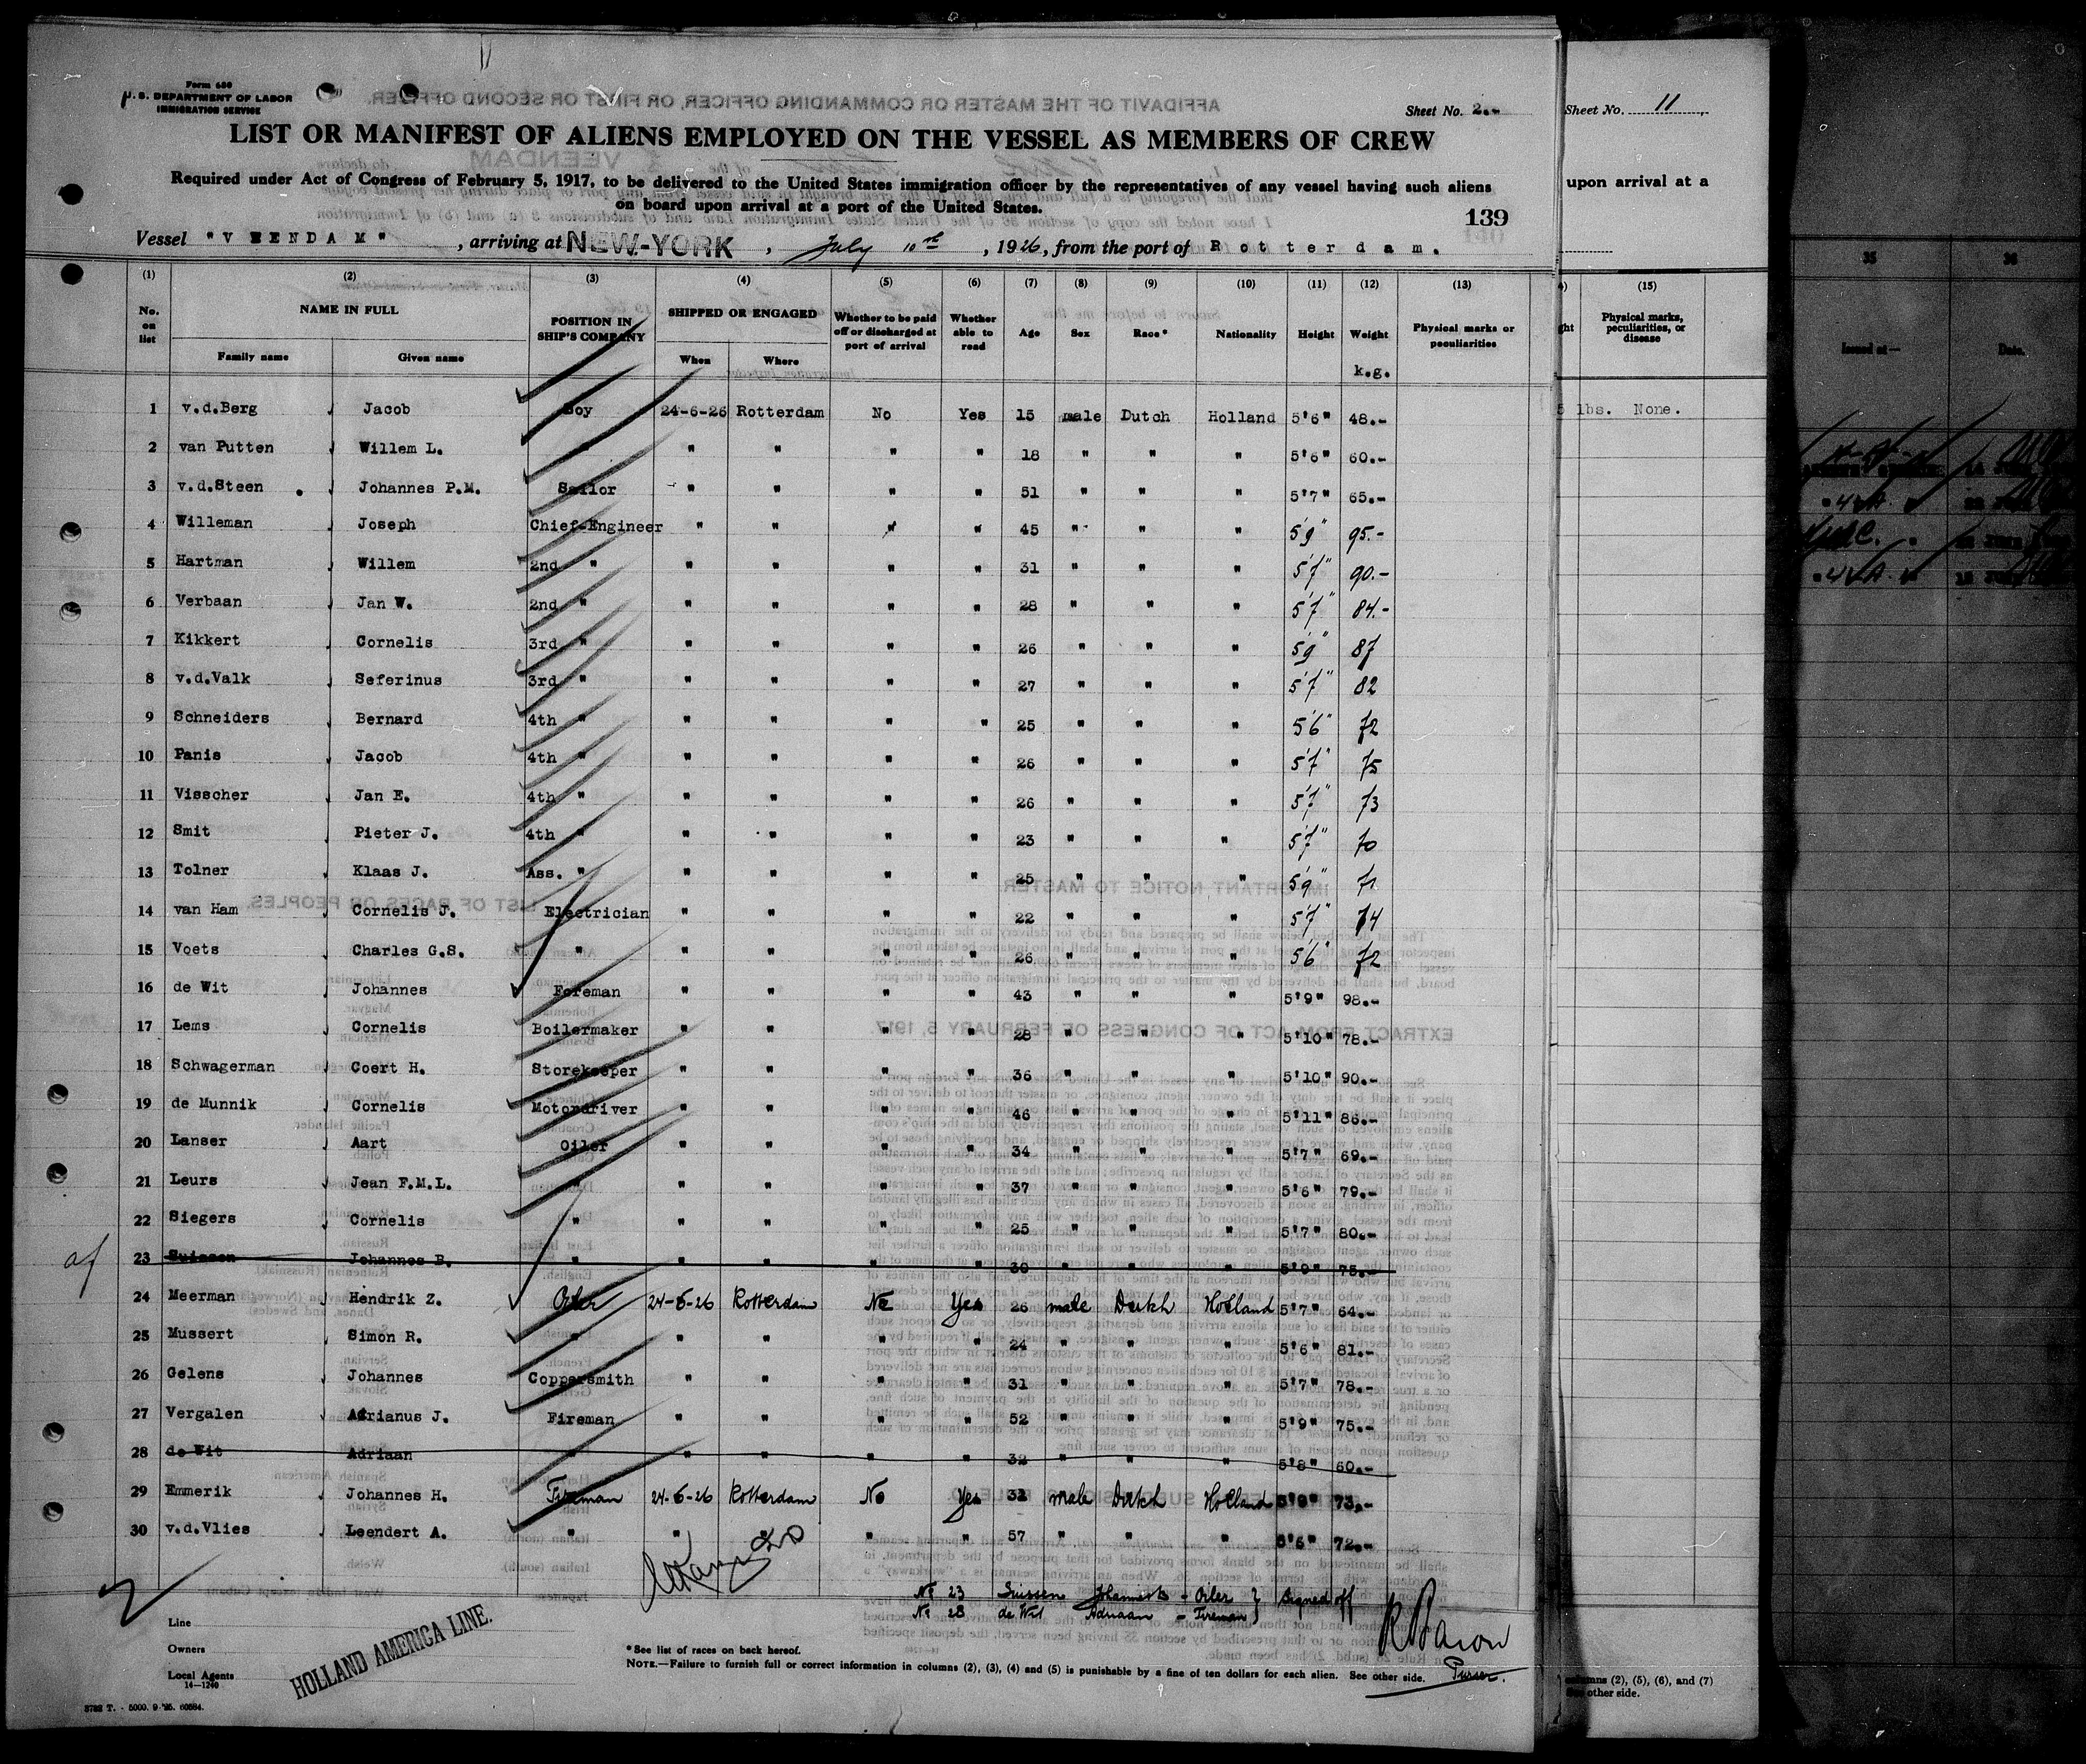 Form 680
U. S. DEPARTMENT OF LABOR
IMMIGRATION SERVICE
Sheet No. 2.-
LIST OR MANIFEST OF ALIENS EMPLOYED ON THE VESSEL AS MEMBERS OF CREW
Required under Act of Congress of February 5, 1917, to be delivered to the United States immigration officer by the representatives of any vessel having such aliens
on board upon arrival at a port of the United States.
139
Vessel "VEENDAM", arriving at NEW-YORK, July 10th, 1926, from the port of Rotterdam.
(1) (2) (3) (4) (5) (6) (7) (8) (9) (10) (11) (12) (13)
No. on list NAME IN FULL POSITION IN SHIP'S COMPANY SHIPPED OR ENGAGED Whether to be paid off or discharged at port of arrival Whether able to read Age Sex Race* Nationality Height Weight Physical marks or peculiarities
Family name Given name When Where k.g.
1 v.d.Berg Jacob Boy 24-6-26 Rotterdam No Yes 15 male Dutch Holland 5'6" 48.-
2 van Putten Willem L. " " " " " 18 " " " 5'6" 60.-
3 v.d.Steen Johannes P.M. Sailor " " " " 51 " " " 5'7" 65.-
4 Willeman Joseph Chief-Engineer " " " " 45 " " " 5'9" 95.-
5 Hartman Willem 2nd " " " " " 31 " " " 5'7" 90.-
6 Verbaan Jan W. 2nd " " " " " 28 " " " 5'7" 84.-
7 Kikkert Cornelis 3rd " " " " " 26 " " " 5'9" 87
8 v.d.Valk Seferinus 3rd " " " " " 27 " " " 5'7" 82
9 Schneiders Bernard 4th " " " " " 25 " " " 5'6" 72
10 Panis Jacob 4th " " " " " 26 " " " 5'7" 75
11 Visscher Jan E. 4th " " " " " 26 " " " 5'7" 73
12 Smit Pieter J. 4th " " " " " 23 " " " 5'7" 70
13 Tolner Klaas J. Ass. " " " " " 25 " " " 5'9" 71
14 van Ham Cornelis J. Electrician " " " " 22 " " " 5'7" 74
15 Voets Charles G.S. " " " " " 26 " " " 5'6" 72
16 de Wit Johannes Foreman " " " " 43 " " " 5'9" 98.-
17 Lems Cornelis Boilermaker " " " " 28 " " " 5'10" 78.-
18 Schwagerman Coert H. Storekeeper " " " " 36 " " " 5'10" 90.-
19 de Munnik Cornelis Motordriver " " " " 46 " " " 5'11" 86.-
20 Lanser Aart Oiler " " " " 34 " " " 5'7" 69.-
21 Leurs Jean F.M.L. " " " " " 37 " " " 5'6" 79.-
22 Siegers Cornelis " " " " " 25 " " " 5'7" 80.-
23 Suissen Johannes B. " " " " " 30 " " " 5'9" 75.-
24 Meerman Hendrik Z. Oiler 24-6-26 Rotterdam No Yes 26 male Dutch Holland 5'7" 64.-
25 Mussert Simon R. " " " " " 24 " " " 5'6" 81.-
26 Gelens Johannes Coppersmith " " " " 31 " " " 5'7" 78.-
27 Vergalen Adrianus J. Fireman " " " " 52 " " " 5'9" 75.-
28 de Wit Adriaan " " " " " 32 " " " 5'8" 60.-
29 Emmerik Johannes H. Fireman 24-6-26 Rotterdam No Yes 32 male Dutch Holland 73.-
30 v.d.Vlies Leendert A. " " " " " 57 " " " 5'6" 72.-
No 23 Suissen Johannes B - Oiler } Signed off
No 28 de Wit Adriaan - Fireman }
Line
Owners
Local Agents
14—1240
HOLLAND AMERICA LINE.
*See list of races on back hereof.
NOTE.—Failure to furnish full or correct information in columns (2), (3), (4) and (5) is punishable by a fine of ten dollars for each alien. See other side.
Purser.
3782 T. - 5000. 9-'25. 60584.
Sheet No. 11
upon arrival at a
(15)
Physical marks, peculiarities, or disease
lbs. None.
columns (2), (5), (6), and (7)
See other side.
35 36
Issued at— Date.